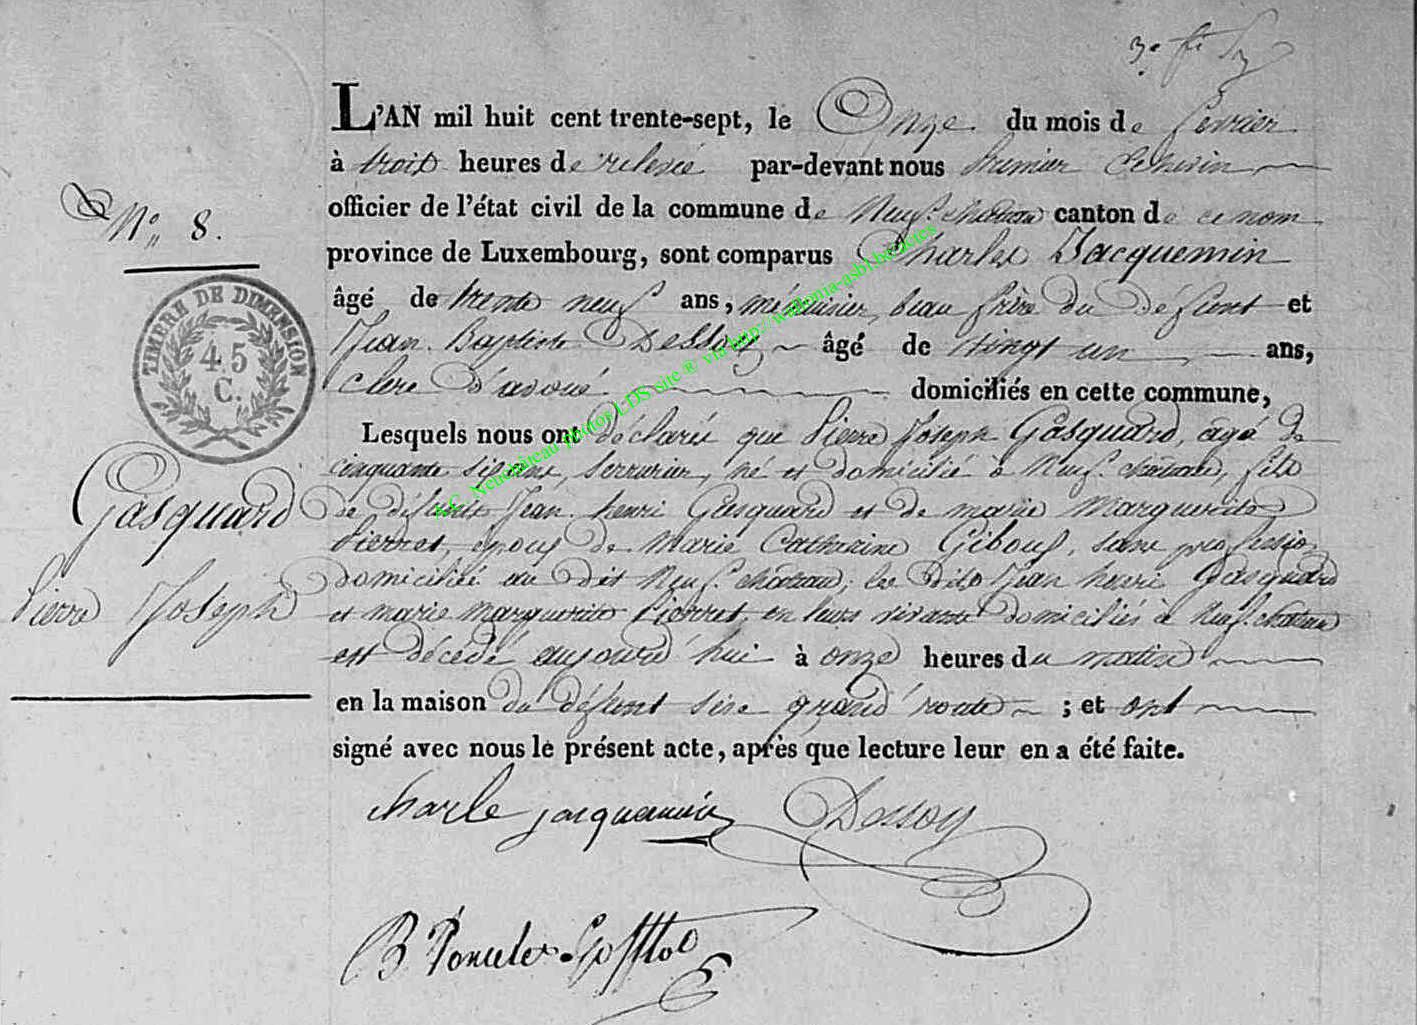 L'AN mil huit cent trente-sept, le Onze du mois de fevrier
à trois heures de relevée par-devant nous premier Echevin
N° 8.
officier de l'état civil de la commune de Neufchateau canton de ce nom
province de Luxembourg, sont comparus Charles Jacquemin
âgé de trente neuf ans, ménuisier, beau frère du défunt et
TIMBRE DE DIMENSION
45
C.
Jean Baptiste Dessoy âgé de vingt un ans,
clerc d'avoué domiciliés en cette commune,
Lesquels nous ont déclaré que Pierre Joseph Gasquard, agé de
cinquante, serrurier, né et domicilié à Neufchateau, fils
Gasquard
de défunts Jean henri Gasquard et de marie Marguerite
Pierret, epoux de Marie Catherine Gibous, sans professio
Pierre Joseph
domiciliée au dit Neufchateau; les dits Jean henri Gasquard
et marie marguerite Pierret, en leurs vivants domiciliés à Neufchateau
est décédé aujourd'hui à onze heures du matin
en la maison du défunt sise grand'route ; et ont
signé avec nous le présent acte, après que lecture leur en a été faite.
charle jacquemin Dessoy
A.C. Neufchâteau photos LDS site ® via http://wallonia-asbl.be/actes